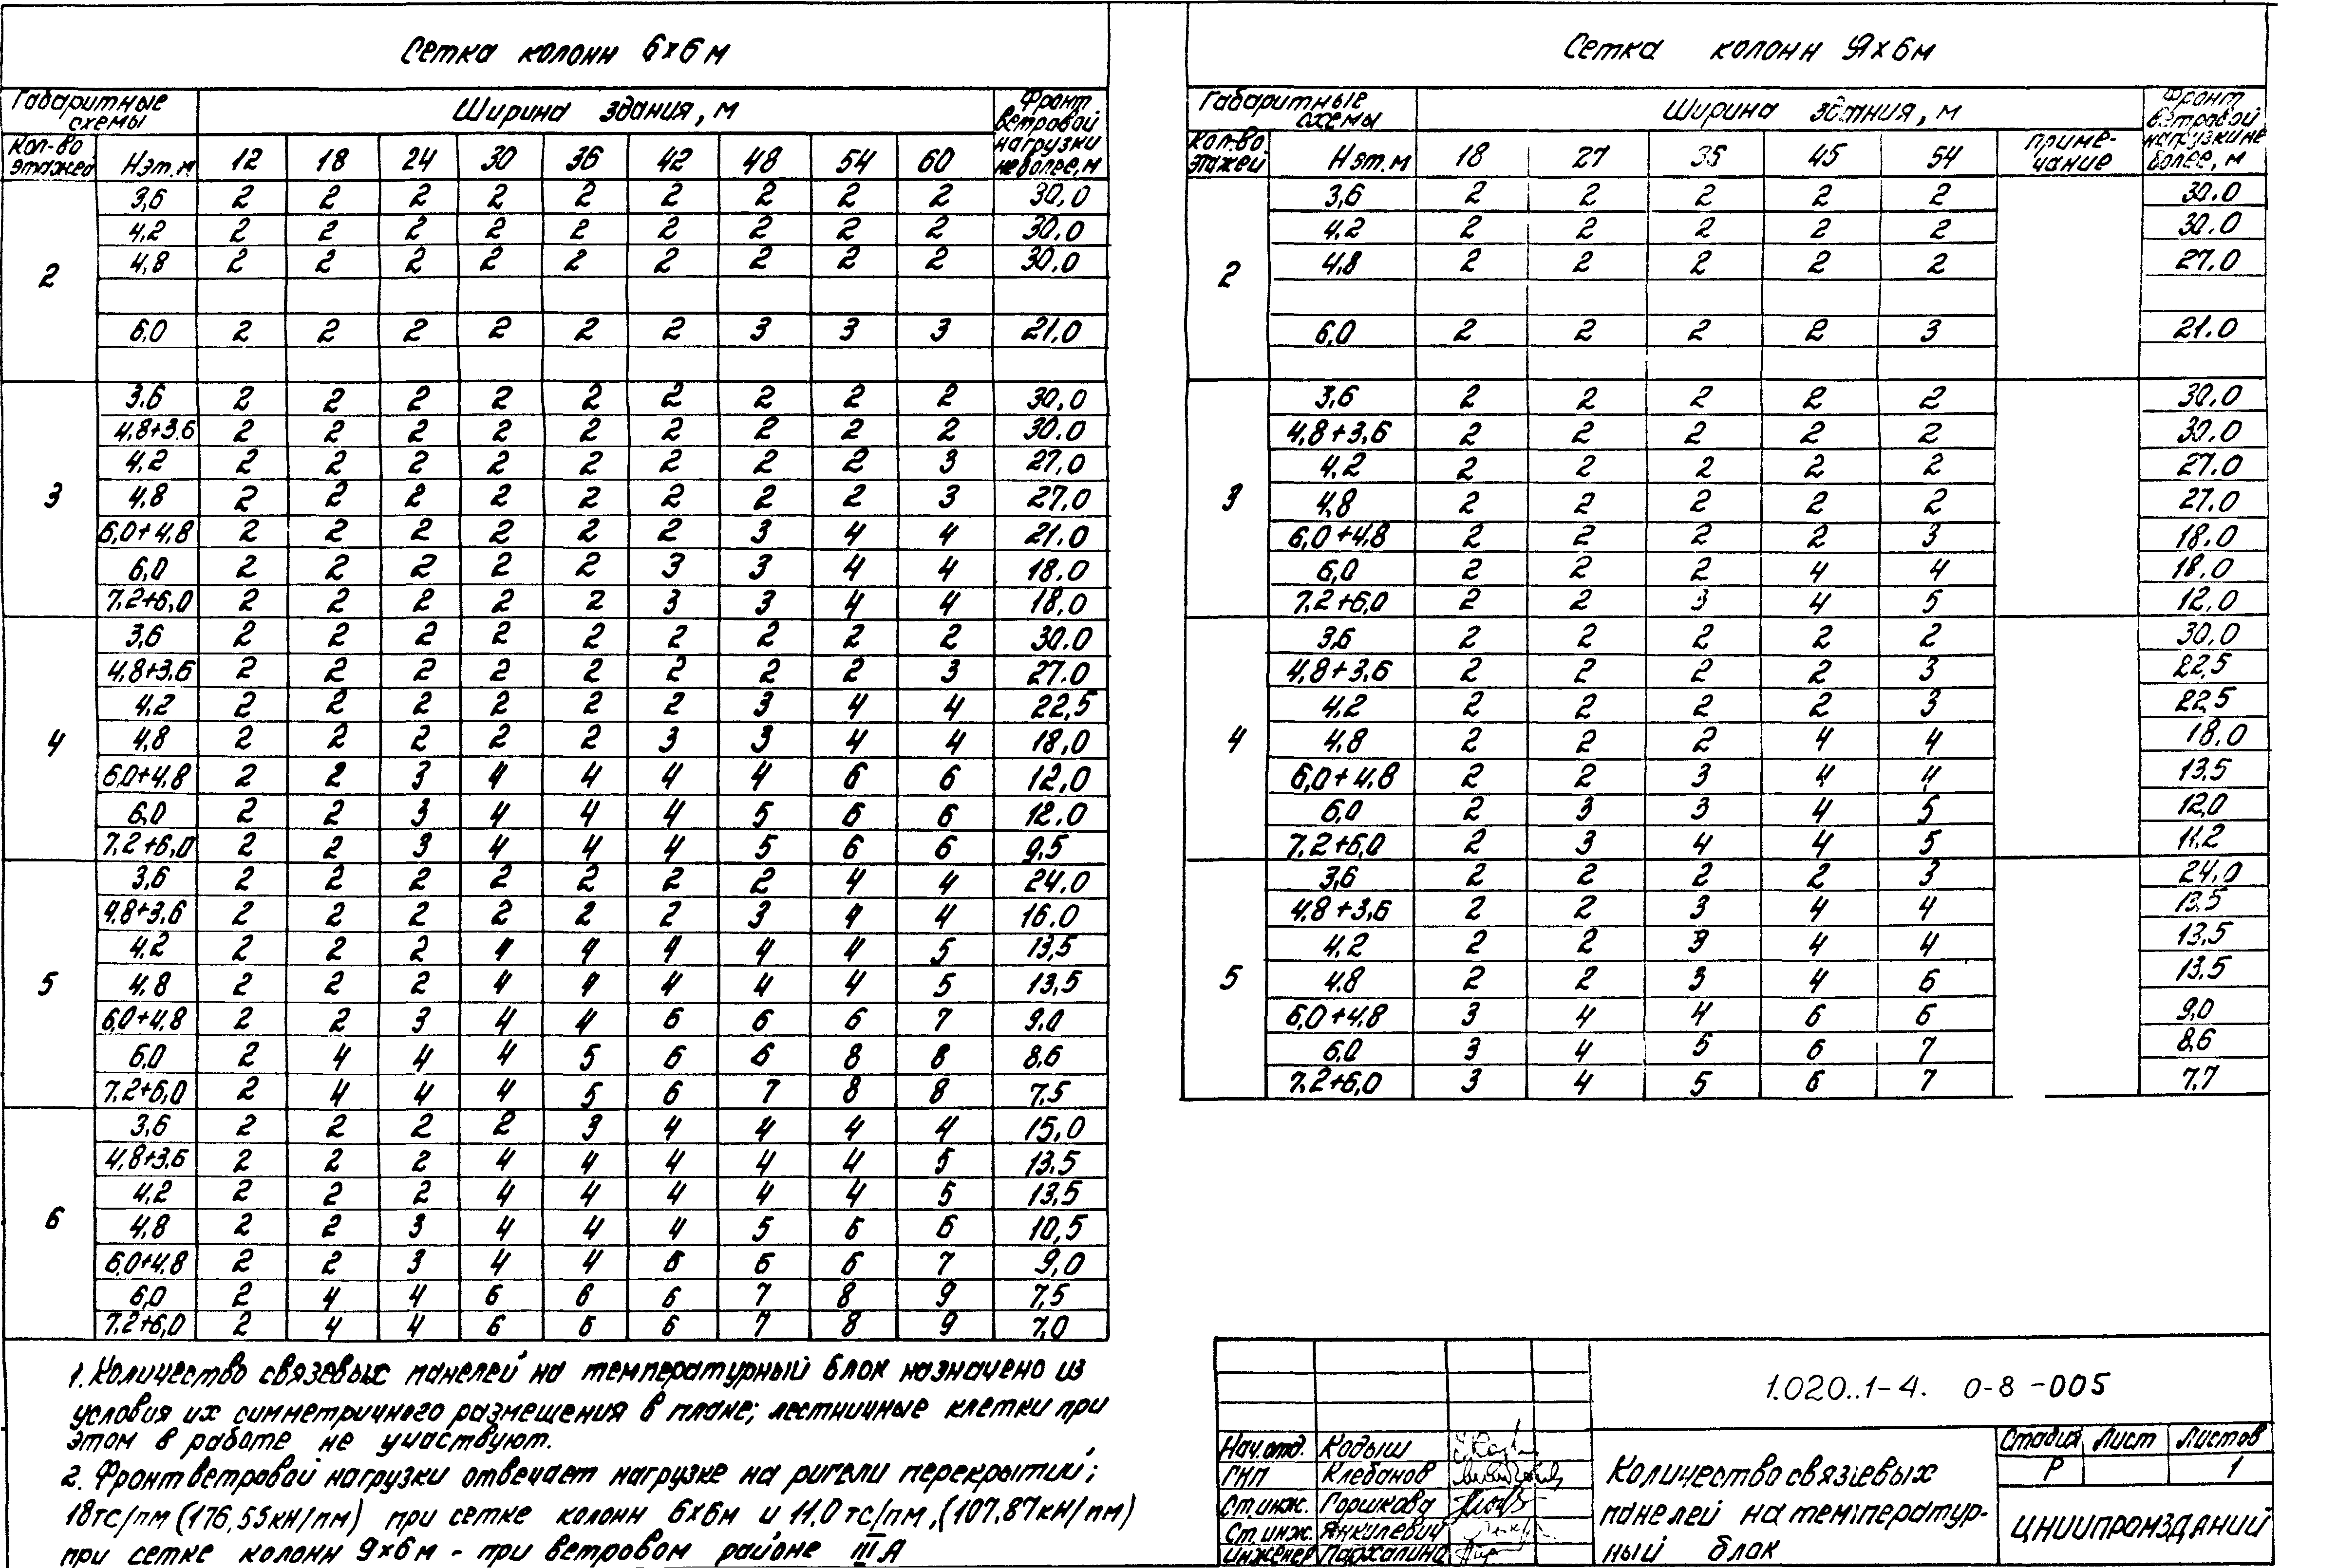 Сетка колонн 6×6м
Габаритные схемы | Ширина здания, м | Фронт ветровой нагрузки не более, м
Кол-во этажей | Нэт.м | 12 | 18 | 24 | 30 | 36 | 42 | 48 | 54 | 60
2
3,6 | 2 | 2 | 2 | 2 | 2 | 2 | 2 | 2 | 2 | 30,0
4,2 | 2 | 2 | 2 | 2 | 2 | 2 | 2 | 2 | 2 | 30.0
4,8 | 2 | 2 | 2 | 2 | 2 | 2 | 2 | 2 | 2 | 30,0
6,0 | 2 | 2 | 2 | 2 | 2 | 2 | 3 | 3 | 3 | 21,0
3
3.6 | 2 | 2 | 2 | 2 | 2 | 2 | 2 | 2 | 2 | 30,0
4,8+3.6 | 2 | 2 | 2 | 2 | 2 | 2 | 2 | 2 | 2 | 30.0
4,2 | 2 | 2 | 2 | 2 | 2 | 2 | 2 | 2 | 3 | 27,0
4,8 | 2 | 2 | 2 | 2 | 2 | 2 | 2 | 2 | 3 | 27,0
6,0+4,8 | 2 | 2 | 2 | 2 | 2 | 2 | 3 | 4 | 4 | 21.0
6,0 | 2 | 2 | 2 | 2 | 2 | 3 | 3 | 4 | 4 | 18.0
7,2+6,0 | 2 | 2 | 2 | 2 | 2 | 3 | 3 | 4 | 4 | 18,0
4
3,6 | 2 | 2 | 2 | 2 | 2 | 2 | 2 | 2 | 2 | 30.0
4,8+3,6 | 2 | 2 | 2 | 2 | 2 | 2 | 2 | 2 | 3 | 27.0
4,2 | 2 | 2 | 2 | 2 | 2 | 2 | 3 | 4 | 4 | 22,5
4,8 | 2 | 2 | 2 | 2 | 2 | 3 | 3 | 4 | 4 | 18,0
6,0+4,8 | 2 | 2 | 3 | 4 | 4 | 4 | 4 | 6 | 6 | 12,0
6,0 | 2 | 2 | 3 | 4 | 4 | 4 | 5 | 6 | 6 | 12.0
7.2+6,0 | 2 | 2 | 3 | 4 | 4 | 4 | 5 | 6 | 6 | 9,5
5
3,6 | 2 | 2 | 2 | 2 | 2 | 2 | 2 | 4 | 4 | 24,0
4,8+3,6 | 2 | 2 | 2 | 2 | 2 | 2 | 3 | 4 | 4 | 16.0
4,2 | 2 | 2 | 2 | 4 | 4 | 4 | 4 | 4 | 5 | 13,5
4,8 | 2 | 2 | 2 | 4 | 4 | 4 | 4 | 4 | 5 | 13,5
6,0+4,8 | 2 | 2 | 3 | 4 | 4 | 6 | 6 | 6 | 7 | 9.0
6,0 | 2 | 4 | 4 | 4 | 5 | 6 | 6 | 8 | 8 | 8,6
7,2+6,0 | 2 | 4 | 4 | 4 | 5 | 6 | 7 | 8 | 8 | 7,5
6
3,6 | 2 | 2 | 2 | 2 | 3 | 4 | 4 | 4 | 4 | 15,0
4,8+3,6 | 2 | 2 | 2 | 4 | 4 | 4 | 4 | 4 | 5 | 13.5
4,2 | 2 | 2 | 2 | 4 | 4 | 4 | 4 | 4 | 5 | 13,5
4,8 | 2 | 2 | 3 | 4 | 4 | 4 | 5 | 6 | 6 | 10,5
6,0+4,8 | 2 | 2 | 3 | 4 | 4 | 6 | 6 | 6 | 7 | 9,0
6,0 | 2 | 4 | 4 | 6 | 6 | 6 | 7 | 8 | 9 | 7,5
7,2+6,0 | 2 | 4 | 4 | 6 | 6 | 6 | 7 | 8 | 9 | 7,0
1. Количество связевых панелей на температурный блок назначено из
условия их симметричного размещения в плане; лестничные клетки при
этом в работе не участвуют.
2. Фронт ветровой нагрузки отвечает нагрузке на ригели перекрытий;
18тс/пм (176,55кН/пм) при сетке колонн 6×6м и 11.0 тс/пм, (107,87кН/пм)
при сетке колонн 9×6м - при ветровом районе III А
Сетка колонн 9×6м
Габаритные схемы | Ширина здания, м | Фронт ветровой нагрузки не более, м
Кол-во этажей | Нэт.м | 18 | 27 | 35 | 45 | 54 | Приме-чание
2
3,6 | 2 | 2 | 2 | 2 | 2 | 30.0
4,2 | 2 | 2 | 2 | 2 | 2 | 30.0
4,8 | 2 | 2 | 2 | 2 | 2 | 27.0
6,0 | 2 | 2 | 2 | 2 | 3 | 21.0
3
3,6 | 2 | 2 | 2 | 2 | 2 | 30.0
4,8+3,6 | 2 | 2 | 2 | 2 | 2 | 30.0
4,2 | 2 | 2 | 2 | 2 | 2 | 27.0
4,8 | 2 | 2 | 2 | 2 | 2 | 27.0
6,0+4,8 | 2 | 2 | 2 | 2 | 3 | 18.0
6,0 | 2 | 2 | 2 | 4 | 4 | 18.0
7,2+6,0 | 2 | 2 | 3 | 4 | 5 | 12,0
4
3,6 | 2 | 2 | 2 | 2 | 2 | 30,0
4,8+3,6 | 2 | 2 | 2 | 2 | 3 | 22,5
4,2 | 2 | 2 | 2 | 2 | 3 | 22,5
4,8 | 2 | 2 | 2 | 4 | 4 | 18,0
6,0+4,8 | 2 | 2 | 3 | 4 | 4 | 13,5
6,0 | 2 | 3 | 3 | 4 | 5 | 12,0
7,2+6,0 | 2 | 3 | 4 | 4 | 5 | 11,2
5
3,6 | 2 | 2 | 2 | 2 | 3 | 24,0
4,8+3,6 | 2 | 2 | 3 | 4 | 4 | 13,5
4,2 | 2 | 2 | 3 | 4 | 4 | 13,5
4.8 | 2 | 2 | 3 | 4 | 6 | 13,5
6,0+4,8 | 3 | 4 | 4 | 6 | 6 | 9,0
6,0 | 3 | 4 | 5 | 6 | 7 | 8,6
7,2+6,0 | 3 | 4 | 5 | 6 | 7 | 7,7
1.020..1-4. 0-8-005
Нач.отд. Кодыш
ГИП Клебанов
Ст.инж. Горшкова
Ст.инж. Янкилевич
Инженер Пархалина
Количество связевых
панелей на температур-
ный блок
Стадия | Лист | Листов
Р | 1
ЦНИИПРОМЗДАНИЙ